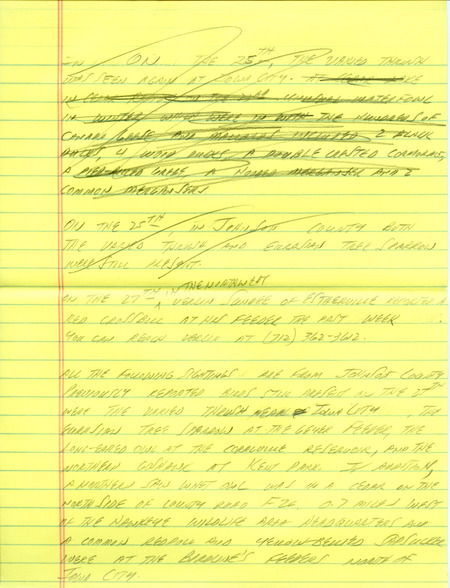 IN ON THE 25TH, THE VARIED THRUSH
WAS SEEN AGAIN AT IOWA CITY. AT CEDAR LAKE
IN CEDAR RAPIDS UNUSUAL WATERFOWL
IN WINTER WERE IN WITH THE HUNDREDS OF
CANADA GEESE AND MALLARDS INCLUDED 2 BLACK
DUCKS, 4 WOOD DUCKS, A DOUBLE CRESTED CORMORANT,
A PIED-BILLED GREBE, A HOODED MERGANSER AND 2
COMMON MERGANSERS
ON THE 25TH, IN JOHNSON COUNTY BOTH
THE VARIED THRUSH AND EURASIAN TREE SPARROW
WERE STILL PRESENT.
IN THE NORTHWEST
ON THE 27TH, SQUARE OF ESTHERVILLE REPORTED A
RED CROSSBILL AT HIS FEEDER THE PAST WEEK.
YOU CAN REACH AT (712) 362-3612.
ALL THE FOLLOWING SIGHTINGS ARE FROM JOHNSON COUNTY
PREVIOUSLY REPORTED BIRDS STILL PRESENT ON THE 27TH
WERE THE VARIED THRUSH NEAR IOWA CITY, THE
EURASIAN TREE SPARROW AT THE FEEDER, THE
LONG-EARED OWL AT THE CORALVILLE RESERVOIR, AND THE
NORTHERN GOSHAWK AT KENT PARK. IN ADDITION,
A NORTHERN SAW WHET OWL WAS IN A CEDAR ON THE
NORTH SIDE OF COUNTY ROAD F28 0.7 MILES WEST
OF THE HAWKEYE WILDLIFE AREA HEADQUARTERS AND
A COMMON REDPOLL AND YELLOW-BELLIED SAPSUCKER
WERE AT THE FEEDERS NORTH OF
IOWA CITY.